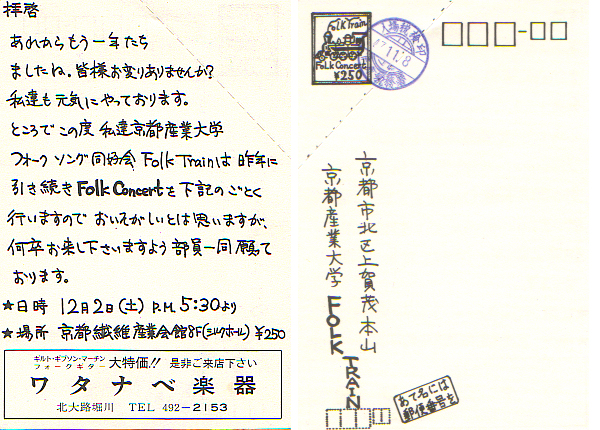 拝啓
あれからもう一年たち
ましたね。皆様お変りありませんか?
私達も元気にやっております。
ところでこの度 私達京都産業大学
フォークソング同好会 Folk Trainは 昨年に
引き続き Folk Concertを下記のごとく
行いますので おいそがしいとは思いますが、
何卒お来し下さいますよう部員一同願って
おります。
★日時 12月2日(土) P.M. 5:30より
★場所 京都繊維産業会館8F(シルクホール) ¥250
ギルト・ギブソン・マーチン
フォークギター
大特価!! 是非ご来店下さい
ワタナベ楽器
北大路堀川 TEL 492-2153
Folk Train
Folk Concert
¥250
11.8
京都市北区上賀茂本山
京都産業大学 FOLK TRAIN
あて名には
郵便番号を